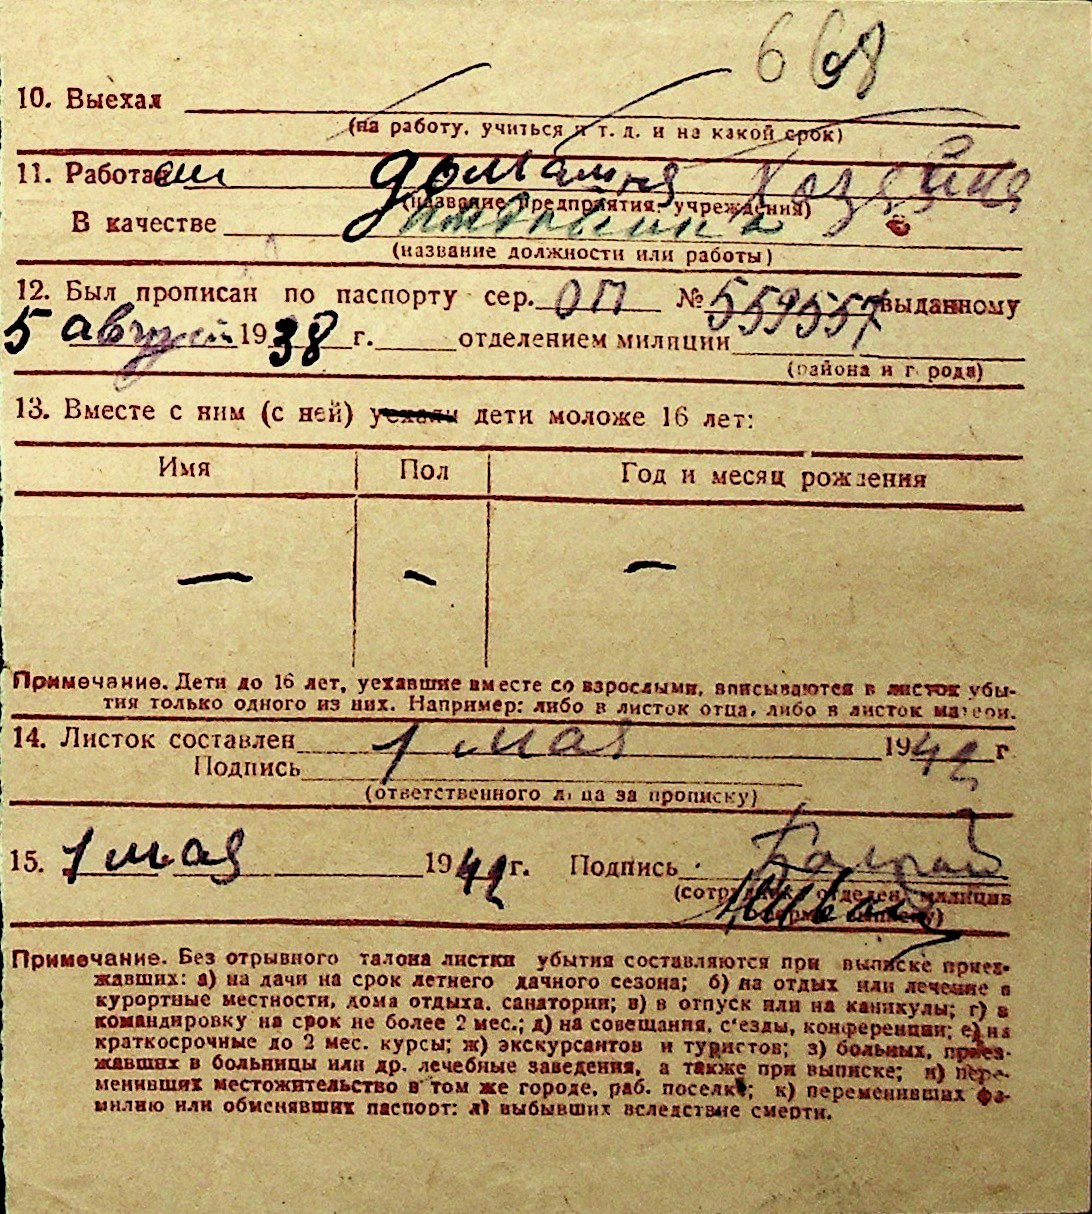 668
10. Выехал
(на работу, учиться и т. д. и на какой срок)
11. Работа домашняя хозяйка
(название предприятия, учреждения)
В качестве иждивенка
(название должности или работы)
12. Был прописан по паспорту сер. ОП № 559557 выданному
5 августа 1938 г. отделением милиции
(района и города)
13. Вместе с ним (с ней) уехали дети моложе 16 лет:
Имя Пол Год и месяц рождения
— — —
Примечание. Дети до 16 лет, уехавшие вместе со взрослыми, вписываются в листок убы-
тия только одного из них. Например: либо в листок отца, либо в листок матери.
14. Листок составлен 1 мая 1942 г
Подпись
(ответственного лица за прописку)
15. 1 мая 1942 г. Подпись
(сотрудник отделен. милиции
Примечание. Без отрывного талона листки убытия составляются при выписке приез-
жавших: а) на дачи на срок летнего дачного сезона; б) на отдых или лечение в
курортные местности, дома отдыха, санатории; в) в отпуск или на каникулы; г) в
командировку на срок не более 2 мес.; д) на совещания, с'езды, конференции; е) на
краткосрочные до 2 мес. курсы; ж) экскурсантов и туристов; з) больных, приез-
жавших в больницы или др. лечебные заведения, а также при выписке; и) пере-
менивших местожительство в том же городе, раб. поселке; к) переменивших фа-
милию или обменявших паспорт: л) выбывших вследствие смерти.